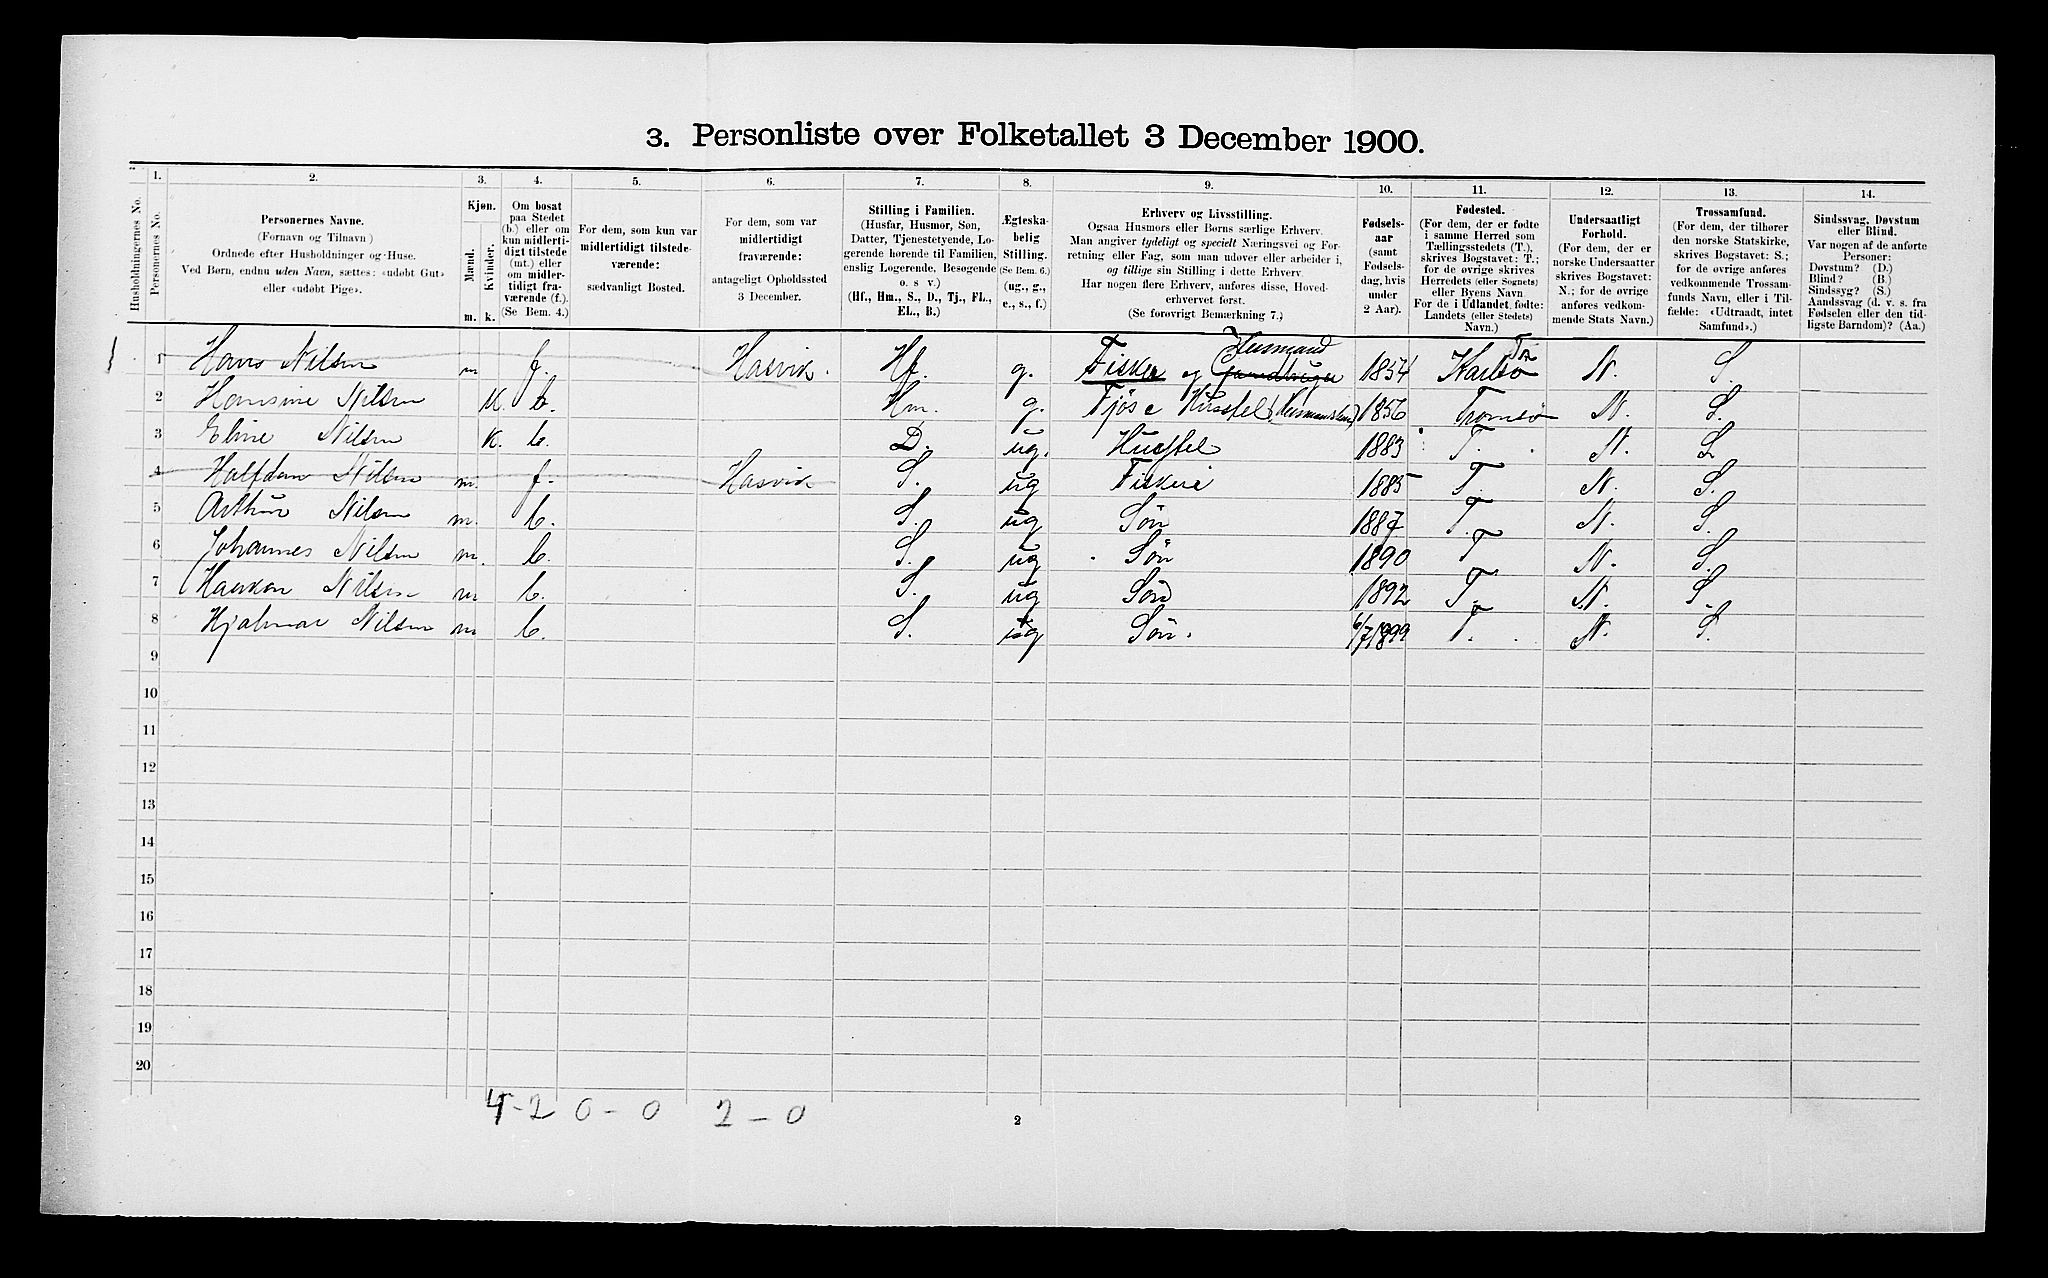 3. Personliste over Folketallet 3 December 1900.
1. 2. 3. 4. 5. 6. 7. 8. 9. 10. 11. 12. 13. 14.
Husholdningernes No.
Personernes No.
Personernes Navne.
(Fornavn og Tilnavn)
Ordnede efter Husholdninger og Huse.
Ved Børn, endnu uden Navn, sættes: «udøbt Gut»
eller «udøbt Pige».
Kjøn.
Mænd.
Kvinder.
m. k.
Om bosat
paa Stedet
(b.) eller om
kun midlerti-
digt tilstede
(mt.) eller
om midler-
tidigt fra-
værende (f.).
(Se Bem. 4.)
For dem, som kun var
midlertidigt tilstede-
værende:
sædvanligt Bosted.
For dem, som var
midlertidigt
fraværende:
antageligt Opholdssted
3 December.
Stilling i Familien.
(Husfar, Husmor, Søn,
Datter, Tjenestetyende, Lo-
gerende hørende til Familien,
enslig Logerende, Besøgende
o. s. v.)
(Hf., Hm., S., D., Tj., FL.,
EL., B.)
Ægteska-
belig
Stilling.
(Se Bem. 6.)
(ug., g.,
e., s., f.)
Erhverv og Livsstilling.
Ogsaa Husmors eller Børns særlige Erhverv.
Man angiver tydeligt og specielt Næringsvei og For-
retning eller Fag, som man udøver eller arbeider i,
og tillige sin Stilling i dette Erhverv.
Har nogen flere Erhverv, anføres disse, Hoved-
erhvervet først.
(Se forøvrigt Bemærkning 7.)
Fødsels-
aar
(samt
Fødsels-
dag, hvis
under
2 Aar).
Fødested.
(For dem, der er fødte
i samme Herred som
Tællingsstedets (T.),
skrives Bogstavet: T.;
for de øvrige skrives
Herredets (eller Sognets)
eller Byens Navn
For de i Udlandet fødte:
Landets (eller Stedets)
Navn.)
Undersaatligt
Forhold.
(For dem, der er
norske Undersaatter
skrives Bogstavet:
N.; for de øvrige
anføres vedkom-
mende Stats Navn.)
Trossamfund.
(For dem, der tilhører
den norske Statskirke,
skrives Bogstavet: S.;
for de øvrige anføres
vedkommende Trossam-
funds Navn, eller i Til-
fælde: «Udtraadt, intet
Samfund».)
Sindssvag, Døvstum
eller Blind.
Var nogen af de anførte
Personer:
Døvstum? (D.)
Blind? (B.)
Sindssyg? (S.)
Aandssvag (d. v. s. fra
Fødselen eller den tid-
ligste Barndom)? (Aa.)
1 Hans Nilsen m f. Hasvik. Hf. g. Fisker og Husmand Gaardbruger 1854 Karlsø N. S.
2 Hansine Nilsen K. b. Hm. g. Fjøs c Husstel 1856 Tromsø N. S.
3 Eline Nilsen K. b. D. ug. Husstel 1883 T. N. S
4 Halfdan Nilsen m. f. Hasvik S. ug Fiskeri 1885 T. N. S.
5 Arthur Nilsen m. b. S. ug Søn 1887 T. N. S.
6 Johannes Nilsen m. b. S. ug Søn 1890 T N. S.
7 Haakon Nilsen m b. S. ug Søn 1892 T. N. S.
8 Hjalmar Nilsen m b. S. ug Søn. 6/7 1899 T. N. S.
9
10
11
12
13
14
15
16
17
18
19
20
4-2 0-0 2-0
2